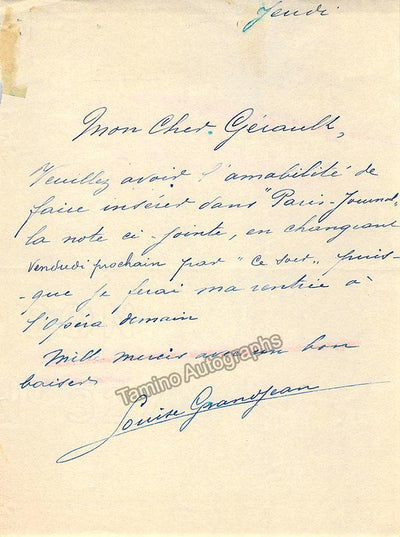 Jeudi
Mon Cher Gérault,
Veuillez avoir l'amabilité de
faire insérer dans "Paris-Journal
la note ci-jointe, en changeant
vendredi prochain par "ce soir", puis-
-que je ferai ma rentrée à
l'Opéra demain
Mille mercis avec un bon
baiser
Louise Grandjean
Tamino Autographs